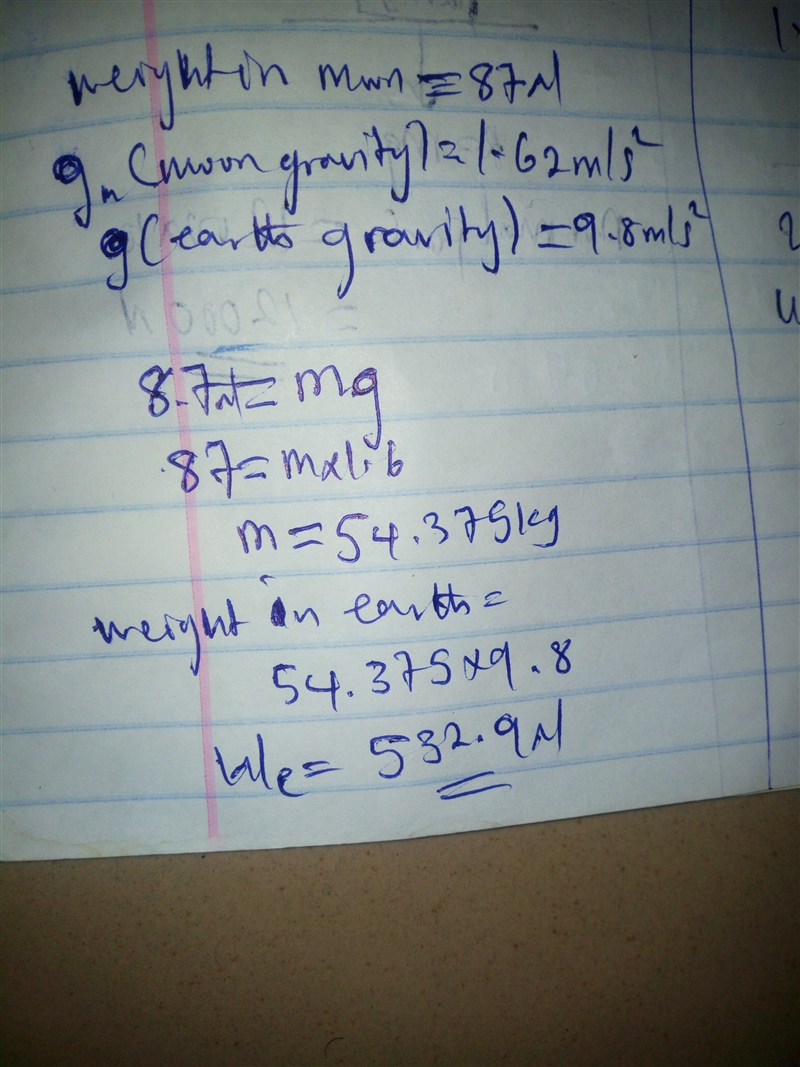 weight in moon = 87N
gm (moon gravity) = 1.62m/s²
g (earth gravity) = 9.8m/s²
= 12000 N
87N = mg
87 = m x 1.6
m = 54.375kg
weight in earth =
54.375 x 9.8
We = 532.9N